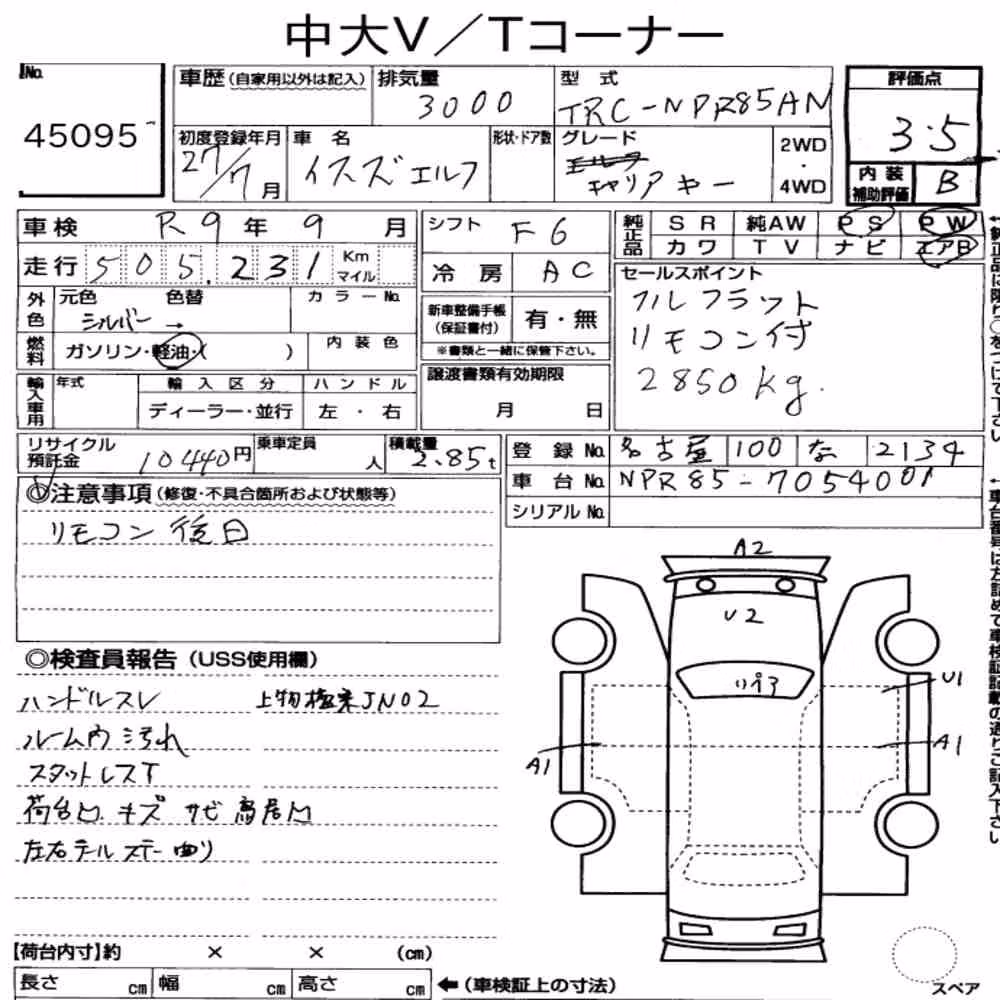 中大V／Tコーナー
No.
45095
車歴（自家用以外は記入）
排気量
3000
型 式
TRC-NPR85AN
評価点
3.5
初度登録年月
27/7月
車 名
イスズ エルフ
形状・ドア数
グレード
キャリアキー
2WD
・
4WD
内装
補助評価
B
車検 R9年 9月
走行 505,231 Km
マイル
シフト F6
冷房 AC
純正品
SR 純AW PS PW
カワ TV ナビ エアB
セールスポイント
フルフラット
リモコン付
2850kg.
外色
元色 色替
シルバー →
カラーNo.
燃料
ガソリン・軽油・( )
内装色
新車整備手帳
（保証書付）
有・無
※書類と一緒に保管下さい。
輸入車用
年式
輸入区分
ディーラー・並行
ハンドル
左・右
譲渡書類有効期限
月 日
リサイクル
預託金
10440円
乗車定員
人
積載量
2.85t
登録No. 名古屋 100 な 2134
車台No. NPR85-7054001
シリアルNo.
◎注意事項（修復・不具合箇所および状態等）
リモコン後日
◎検査員報告（USS使用欄）
ハンドルスレ
上物極東JN02
ルーム内汚れ
スタットレスT
荷台凹 キズ サビ 鳥居凹
左右テールステー曲り
A2
U2
リペア
U1
A1
A1
【荷台内寸】約 × × (cm)
長さ cm 幅 cm 高さ cm
←（車検証上の寸法）
スペア
←純正品に限り○をつけて下さい
←車台番号は左詰めで車検証記載の通りご記入下さい